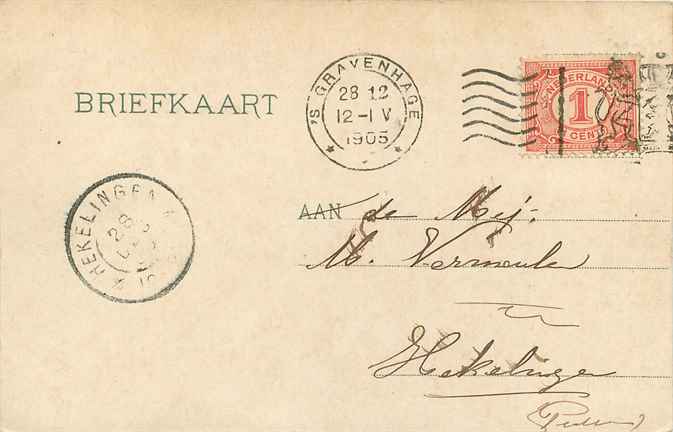 BRIEFKAART
'S GRAVENHAGE
28 12
12-1 V
1905
NEDERLAND
1
CENT
HEKELINGEN
28
AAN de Mej.
M. Vermeule
te
Hekelingen